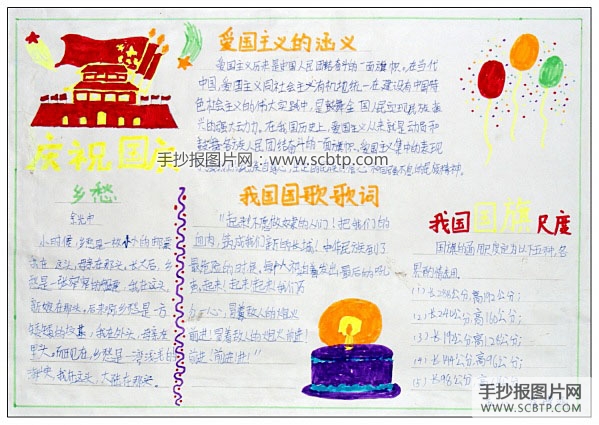 爱国主义的涵义
爱国主义历来是中国人民团结奋斗的一面旗帜。在当代
中国，爱国主义同社会主义有机
一在建设有中国特
色社会主义的伟大实践中，是鼓舞全国人民实现民族振
兴的强大动力。在我国历史上，爱国主义从来就是动员和
团结奋斗的一面旗帜。爱国主义集中的表现
民族精神。
庆祝国庆
手抄报图片网：www.scbtp.com
乡愁
余光中
小时候，乡愁是一枚小小的邮票
我在这头，母亲在那头。长大后，乡
愁是一张窄窄的船票，我在这头，
新娘在那头。后来啊，乡愁是一方
矮矮的坟墓，我在外头，母亲在
里头。而现在，乡愁是一湾浅浅的
海峡，我在这头，大陆在那头。
我国国歌歌词
“起来！不愿做奴隶的人们！把我们的
血肉，筑成我们新的长城！中华民族到了
最危险的时候，每个人被迫着发出最后的吼
声。起来！起来！起来！我们万
众一心，冒着敌人的炮火
前进！冒着敌人的炮火前进！
前进！前进！进！”
我国国旗尺度
国旗的通用尺度定为以下五种，各
界酌情选用
(1)长288公分，高192公分；
(2)长240公分，高160公分；
(3)长192公分，高128公分；
(4)长144公分，高96公分；
(5)长96公分，高
手抄报图片网
WWW.SCBTP.COM